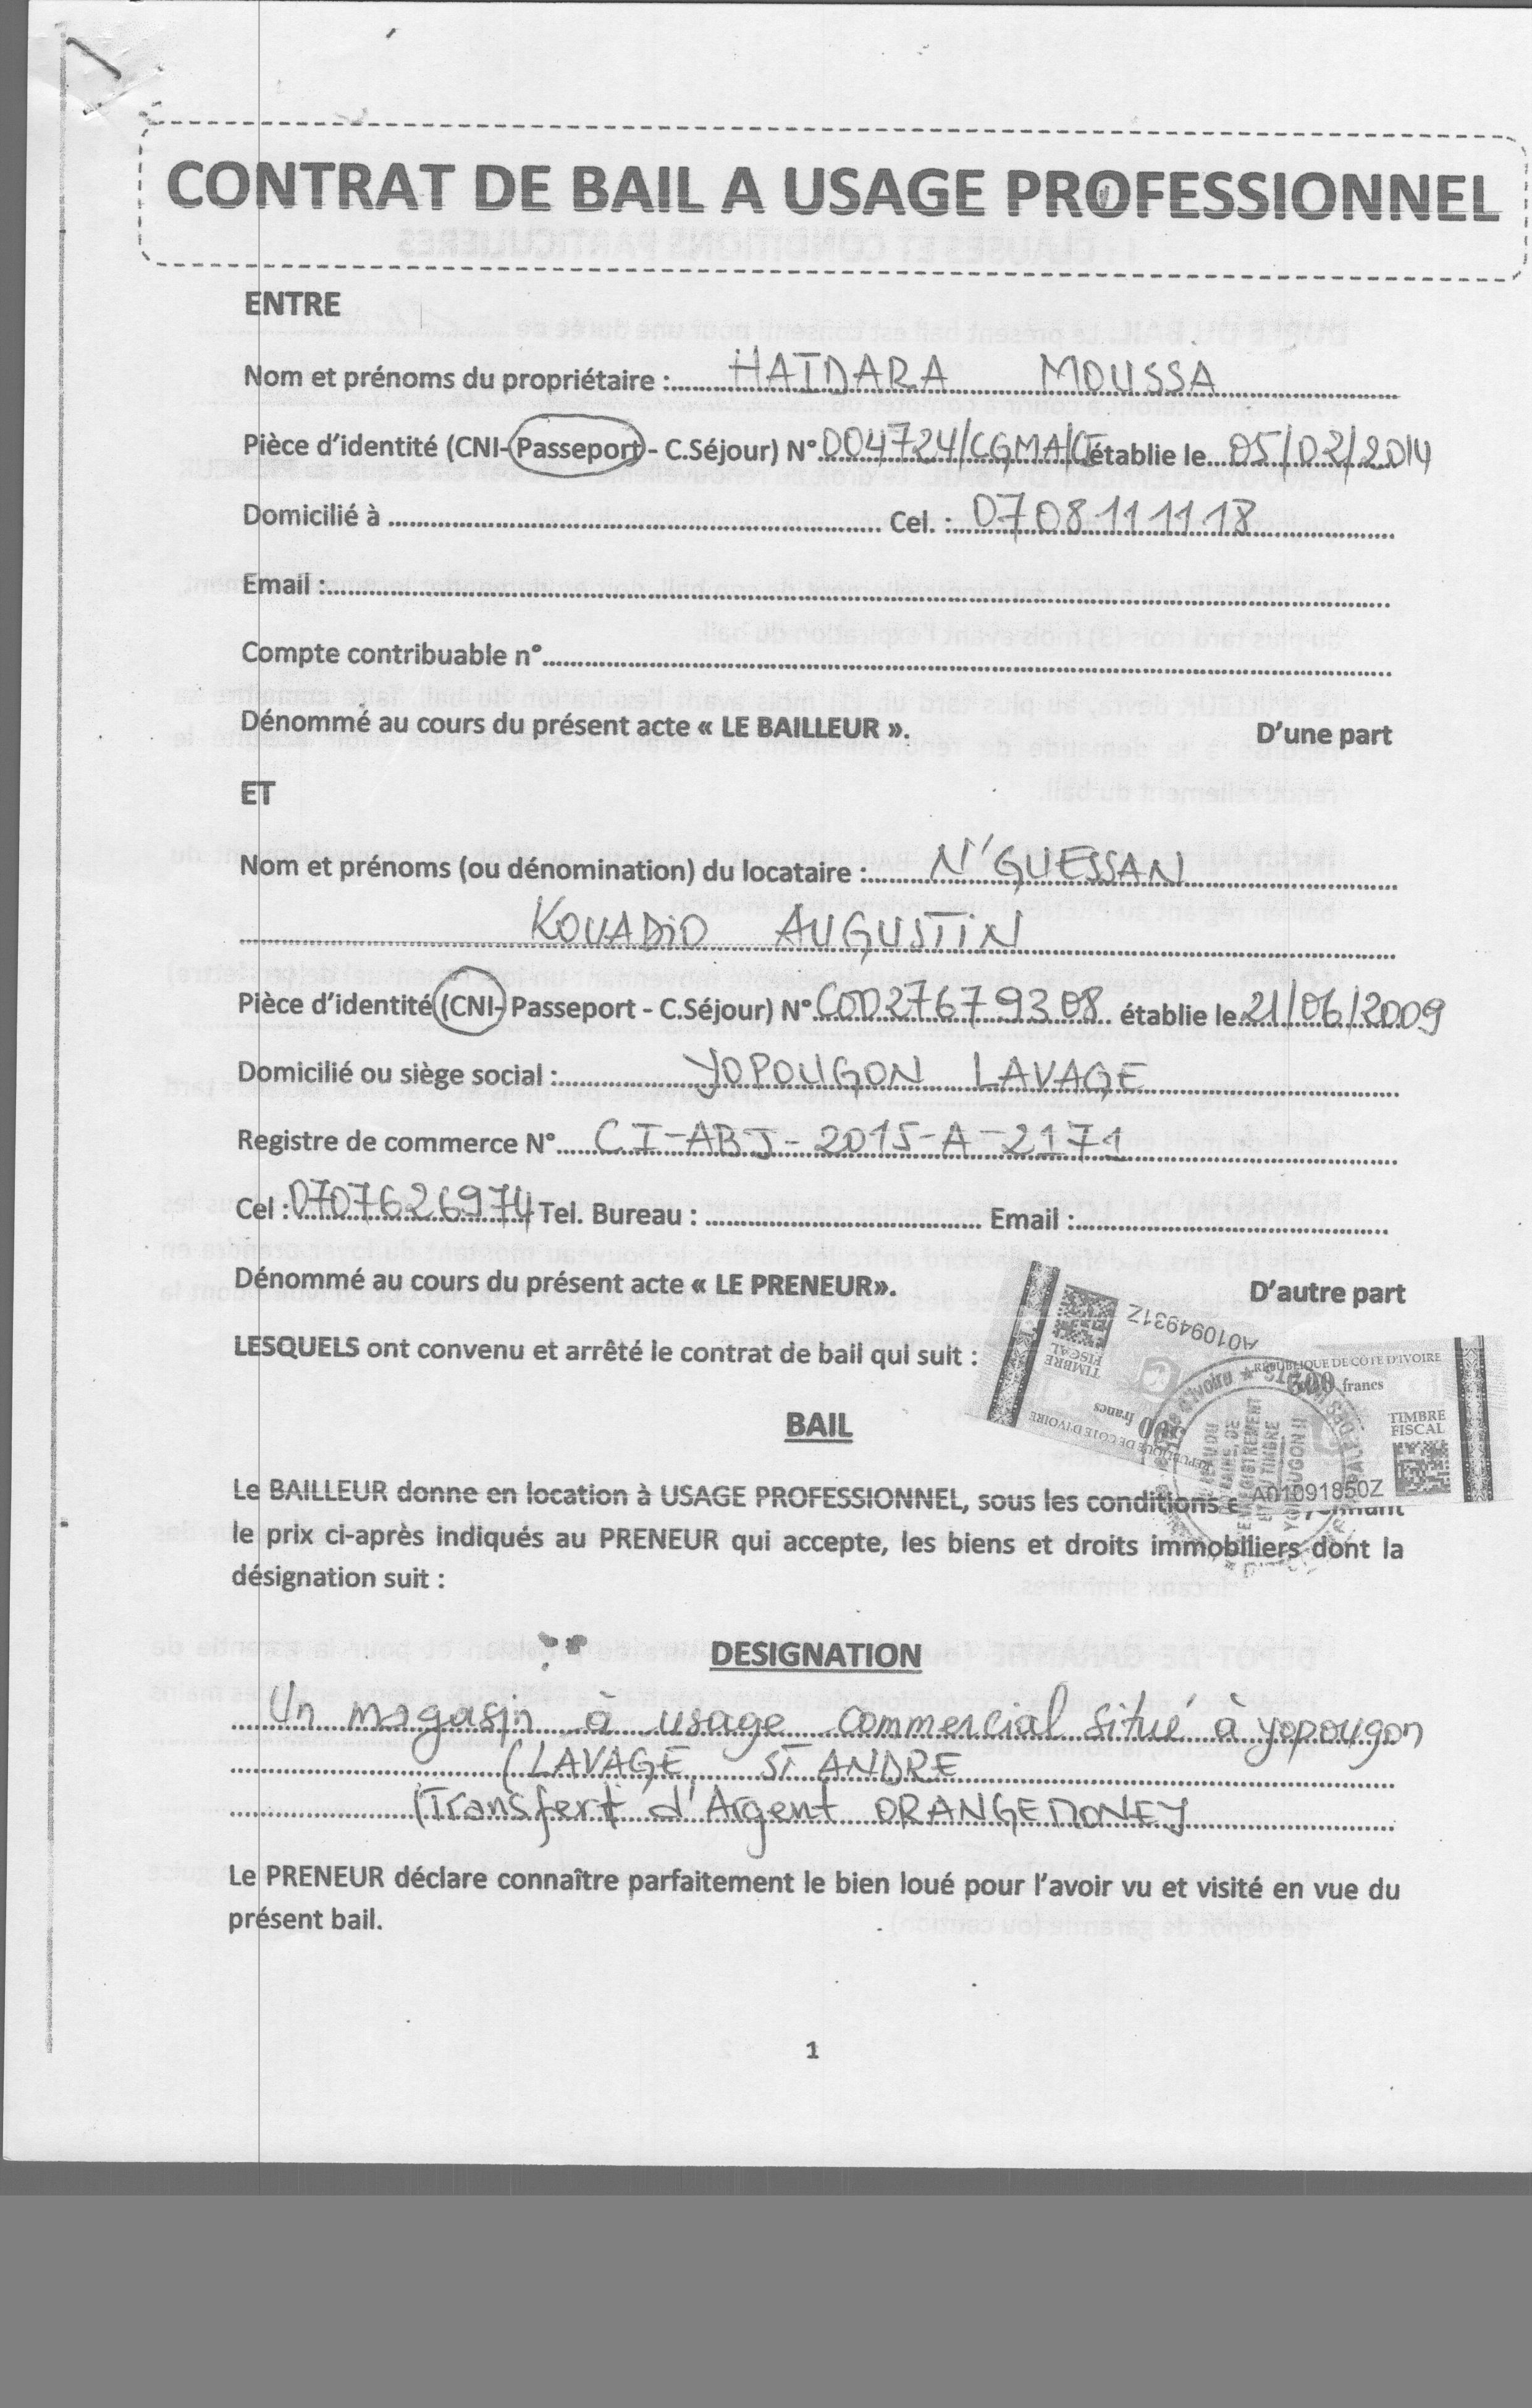 CONTRAT DE BAIL A USAGE PROFESSIONNEL
ENTRE
Nom et prénoms du propriétaire : HAIDARA MOUSSA
Pièce d'identité (CNI-Passeport - C.Séjour) N° 004724/CGMA/CI établie le 05/02/2014
Domicilié à ........ Cel. : 0708111118
Email :
Compte contribuable n°
Dénommé au cours du présent acte « LE BAILLEUR ». D'une part
ET
Nom et prénoms (ou dénomination) du locataire : N'GUESSAN
KOUADIO AUGUSTIN
Pièce d'identité (CNI- Passeport - C.Séjour) N° C0027679308 établie le 21/06/2009
Domicilié ou siège social : YOPOUGON LAVAGE
Registre de commerce N° CI-ABJ-2015-A-2171
Cel : 0707626974 Tel. Bureau : ........ Email :
Dénommé au cours du présent acte « LE PRENEUR». D'autre part
LESQUELS ont convenu et arrêté le contrat de bail qui suit :
A01094931Z
TIMBRE FISCAL
500 francs
REPUBLIQUE DE COTE D'IVOIRE
REPUBLIQUE DE COTE D'IVOIRE
500 francs
TIMBRE
FISCAL
A01091850Z
YOPOUGON II
BAIL
Le BAILLEUR donne en location à USAGE PROFESSIONNEL, sous les conditions
le prix ci-après indiqués au PRENEUR qui accepte, les biens et droits immobiliers dont la
désignation suit :
DESIGNATION
Un magasin à usage commercial situé à yopougon
(LAVAGE ST ANDRE
(Transfert d'Argent ORANGE MONEY
Le PRENEUR déclare connaître parfaitement le bien loué pour l'avoir vu et visité en vue du
présent bail.
1